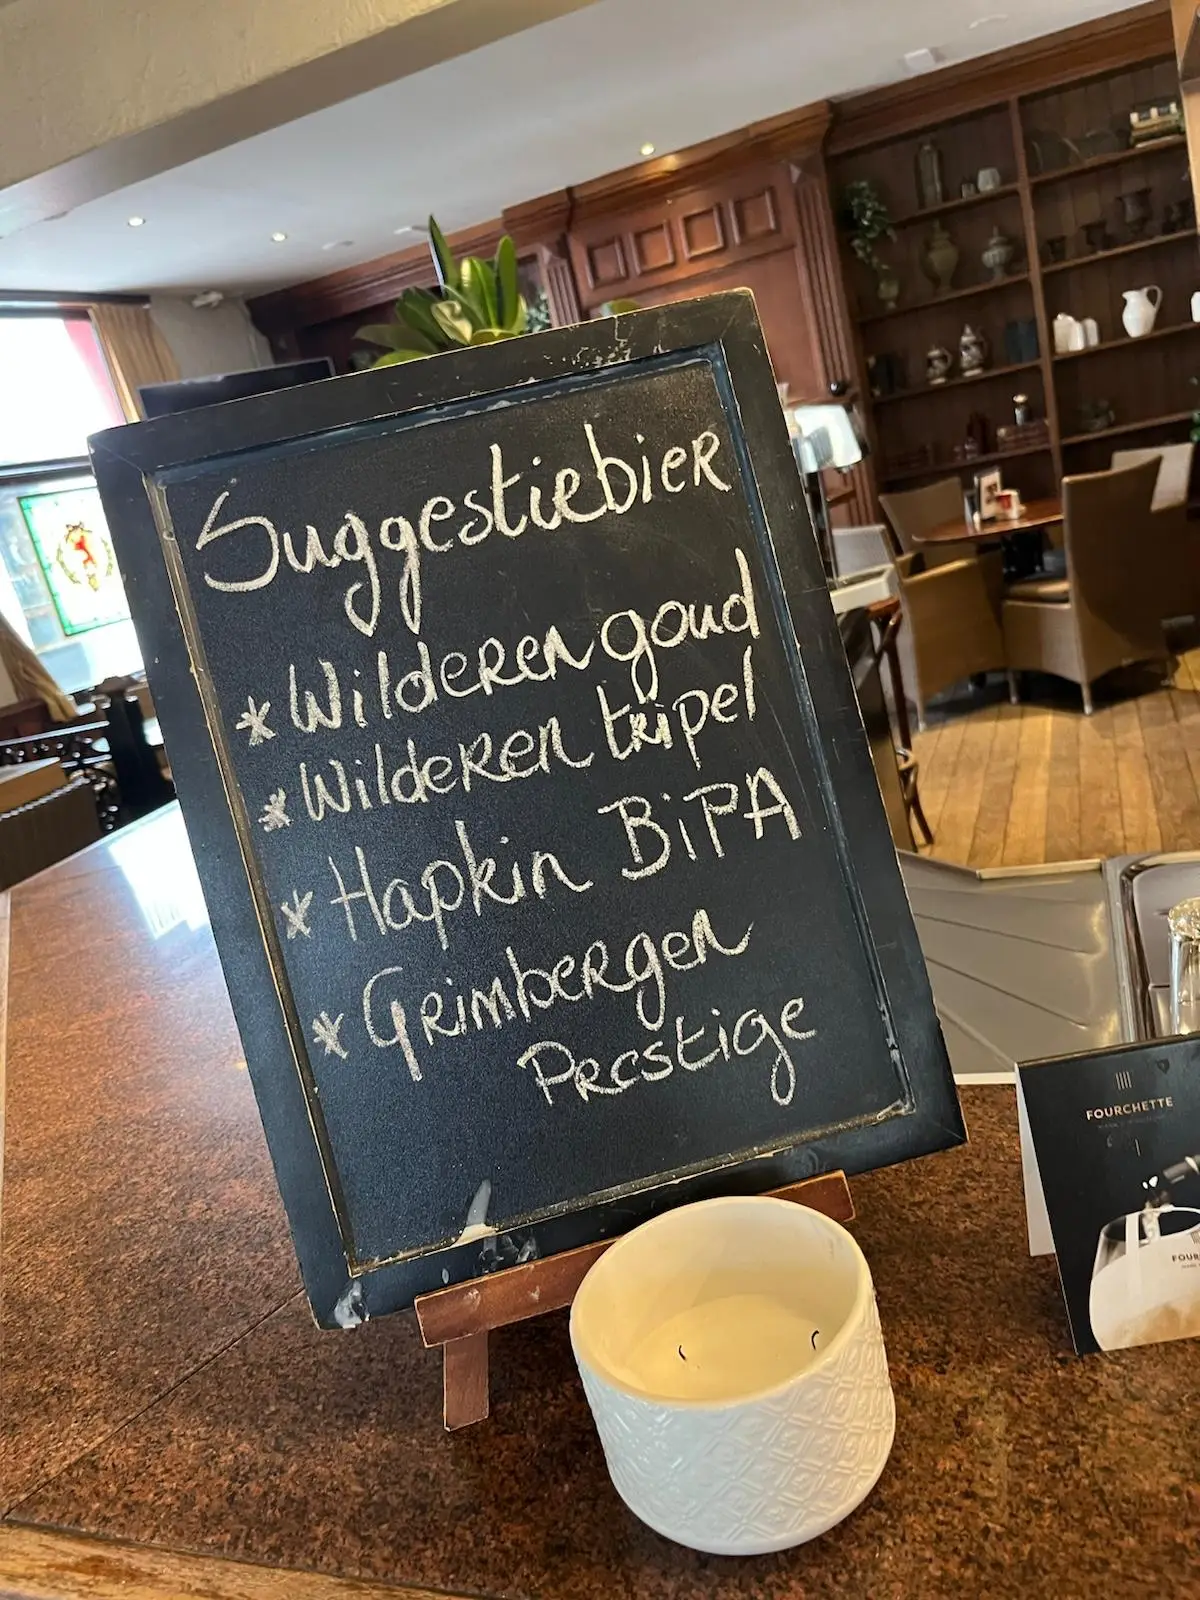 Suggestiebier
* Wilderen goud
* Wilderen tripel
* Hapkin BiPA
* Grimbergen
Prestige
FOURCHETTE